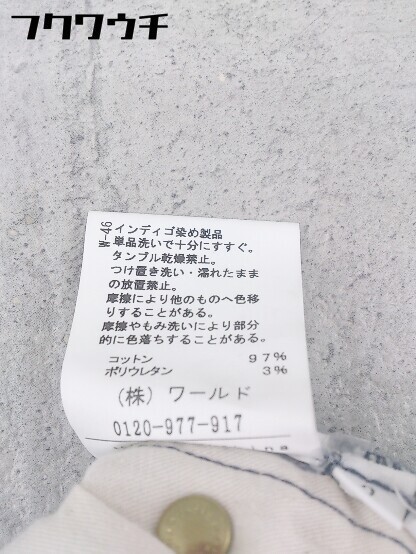 フクワウチ
W-46
インディゴ染め製品
単品洗いで十分にすすぐ。
タンブル乾燥禁止。
つけ置き洗い・濡れたまま
の放置禁止。
摩擦により他のものへ色移
りすることがある。
摩擦やもみ洗いにより部分
的に色落ちすることがある。
コットン 97%
ポリウレタン 3%
(株) ワールド
0120-977-917